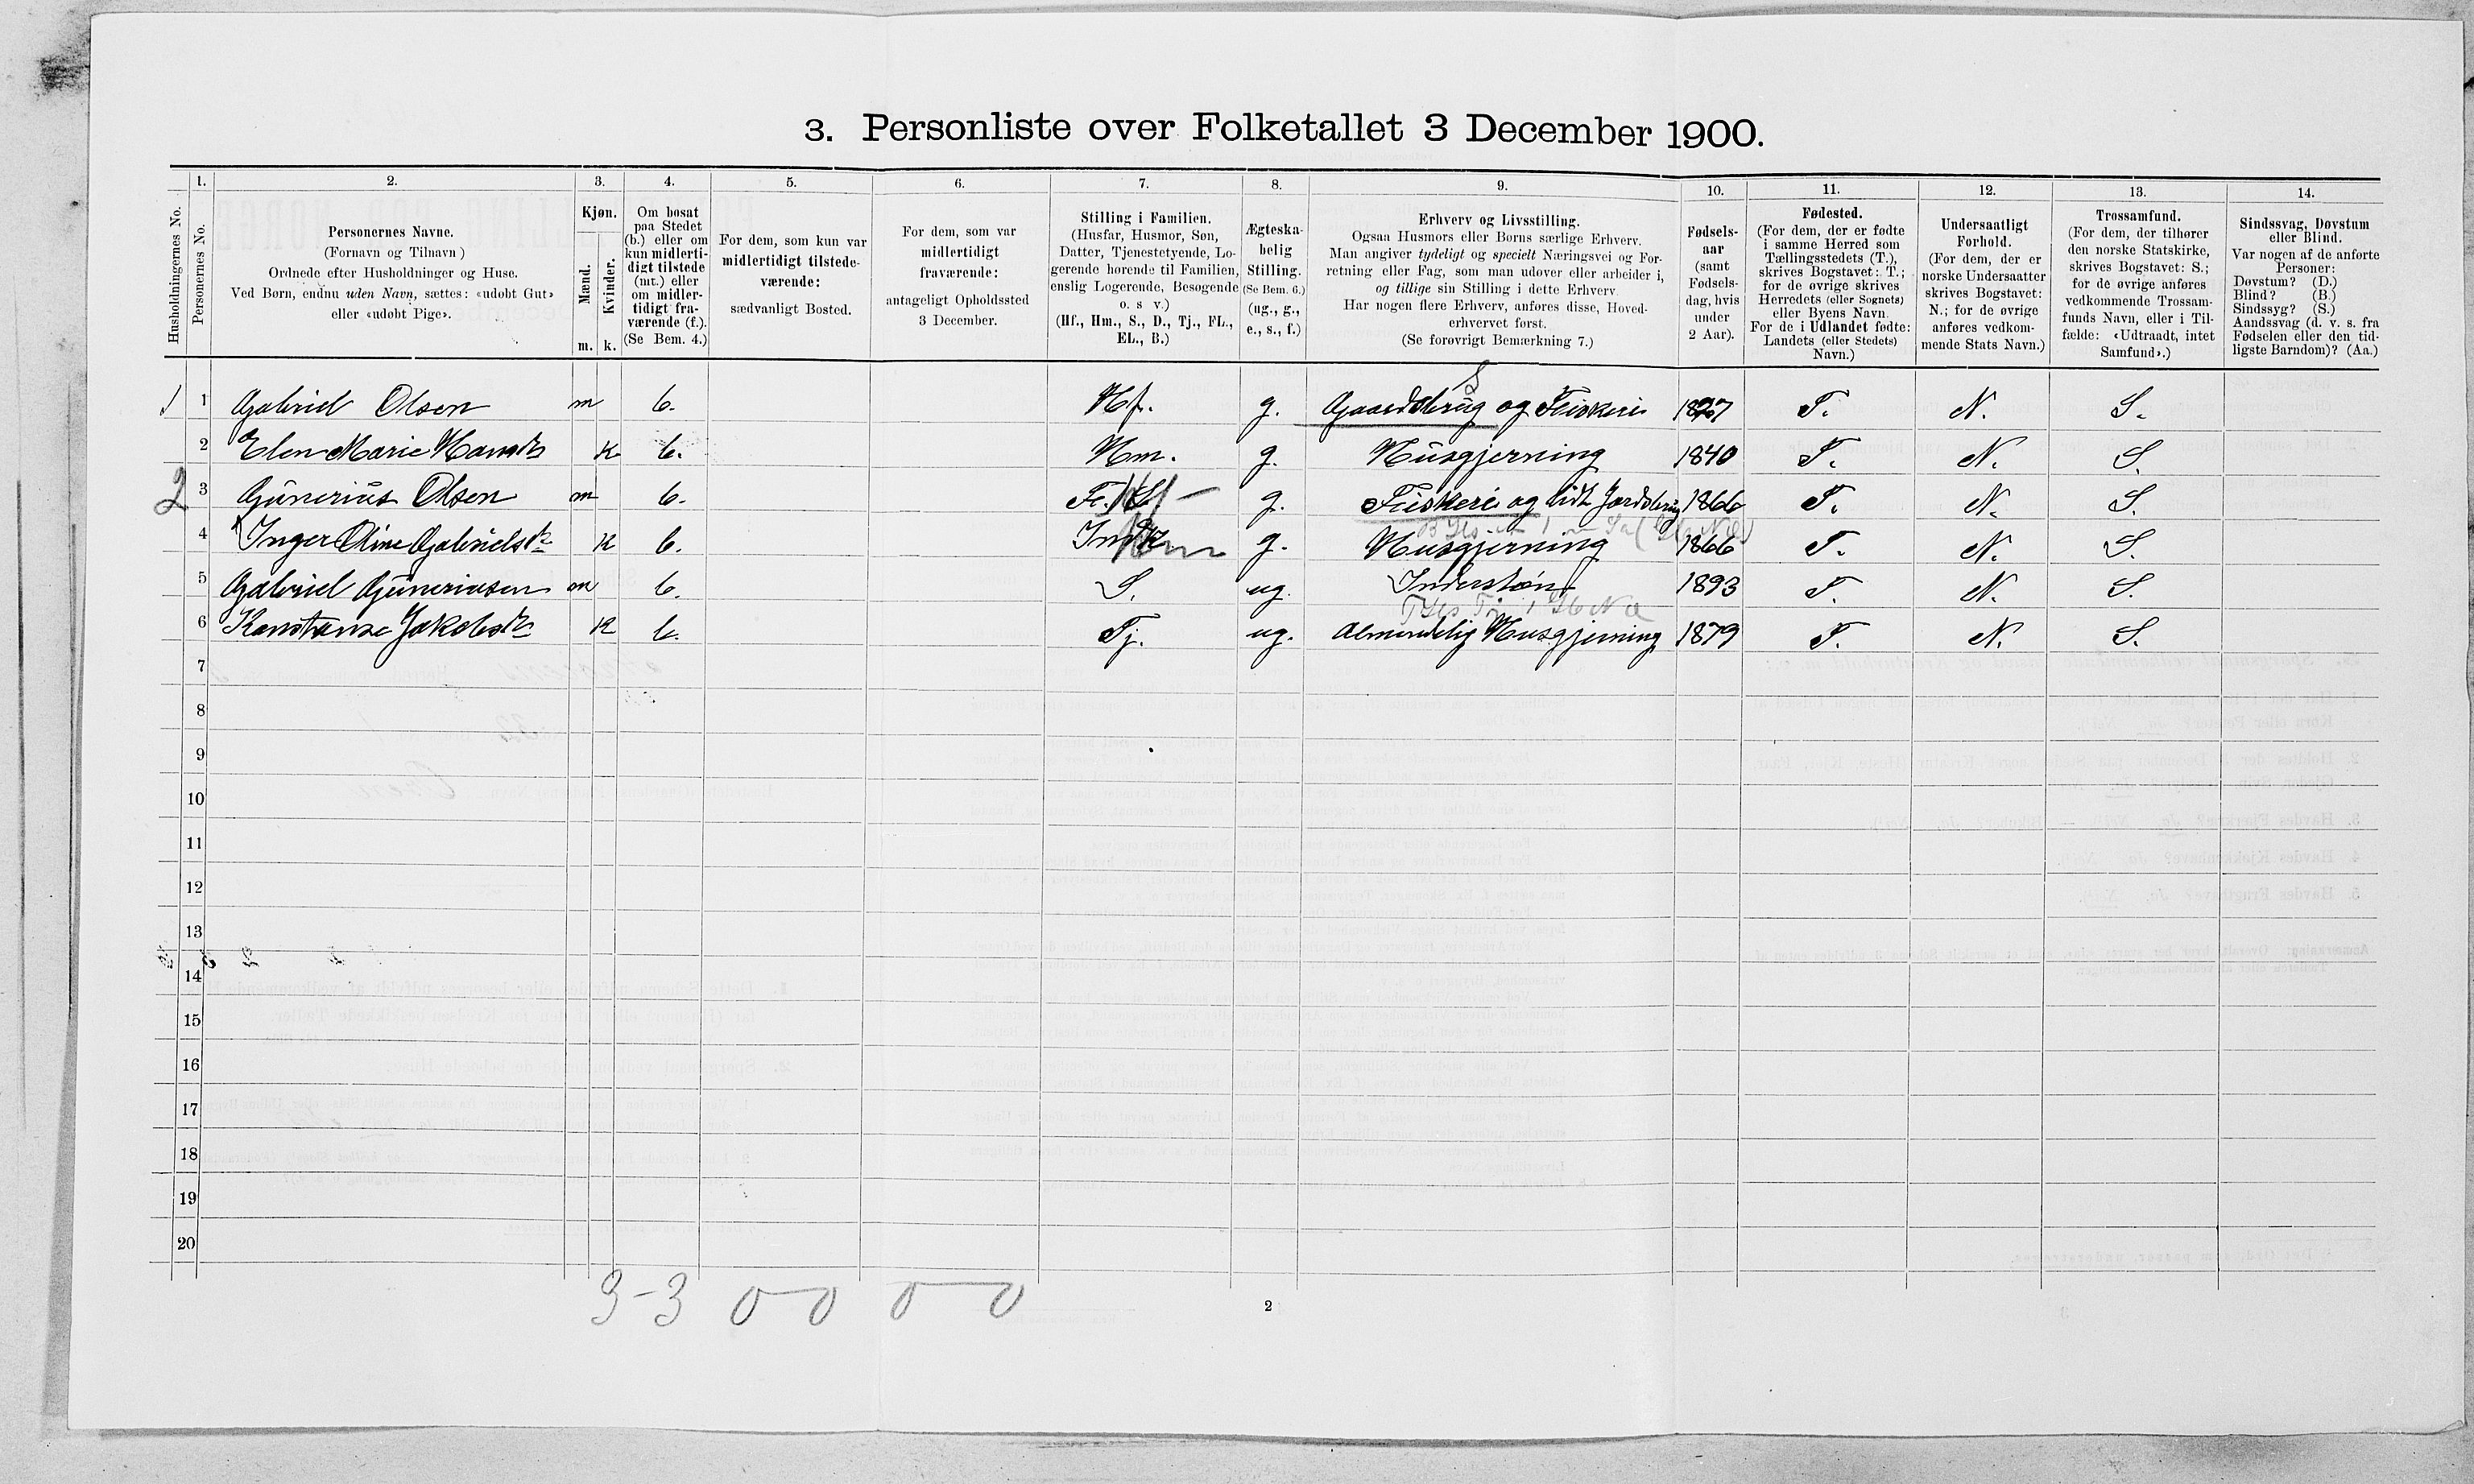 3. Personliste over Folketallet 3 December 1900.
1. 2. 3. 4. 5. 6. 7. 8. 9. 10. 11. 12. 13. 14.
Husholdningernes No.
Personernes No.
Personernes Navne.
(Fornavn og Tilnavn)
Ordnede efter Husholdninger og Huse.
Ved Børn, endnu uden Navn, sættes: «udøbt Gut»
eller «udøbt Pige».
Kjøn.
Mænd.
Kvinder.
m. k.
Om bosat
paa Stedet
(b.) eller om
kun midlerti-
digt tilstede
(mt.) eller
om midler-
tidigt fra-
værende (f.).
(Se Bem. 4.)
For dem, som kun var
midlertidigt tilstede-
værende:
sædvanligt Bosted.
For dem, som var
midlertidigt
fraværende:
antageligt Opholdssted
3 December.
Stilling i Familien.
(Husfar, Husmor, Søn,
Datter, Tjenestetyende, Lo-
gerende hørende til Familien,
enslig Logerende, Besøgende
o. s v.)
(Hf., Hm., S., D., Tj., FL.,
EL., B.)
Ægteska-
belig
Stilling.
(Se Bem. 6.)
(ug., g.,
e., s., f.)
Erhverv og Livsstilling.
Ogsaa Husmors eller Børns særlige Erhverv.
Man angiver tydeligt og specielt Næringsvei og For-
retning eller Fag, som man udøver eller arbeider i,
og tillige sin Stilling i dette Erhverv.
Har nogen flere Erhverv, anføres disse, Hoved-
erhvervet først.
(Se forøvrigt Bemærkning 7.)
Fødsels-
aar
(samt
Fødsels-
dag, hvis
under
2 Aar).
Fødested.
(For dem, der er fødte
i samme Herred som
Tællingsstedets (T.),
skrives Bogstavet: T.;
for de øvrige skrives
Herredets (eller Sognets)
eller Byens Navn.
For de i Udlandet fødte:
Landets (eller Stedets)
Navn.)
Undersaatligt
Forhold.
(For dem, der er
norske Undersaatter
skrives Bogstavet:
N.; for de øvrige
anføres vedkom-
mende Stats Navn.)
Trossamfund.
(For dem, der tilhører
den norske Statskirke,
skrives Bogstavet: S.;
for de øvrige anføres
vedkommende Trossam-
funds Navn, eller i Til-
fælde: «Udtraadt, intet
Samfund».)
Sindssvag, Døvstum
eller Blind.
Var nogen af de anførte
Personer:
Døvstum? (D.)
Blind? (B.)
Sindssyg? (S.)
Aandssvag (d. v. s. fra
Fødselen eller den tid-
ligste Barndom)? (Aa.)
1 1 Gabriel Olsen m b. Hf. g. Gaardsbrug og Fiskeri 1827 T. N. S.
2 Elen Marie Hansdt k b. Hm. g. Husgjerning 1840 T. N. S.
2 3 Gunerius Olsen m b. g. Fiskeri og lidt Jordbrug 1866 T. N. S.
4 Inger Oline Gabrielsdt k b. Hm g. Husgjerning 1866 T. N. S.
5 Gabriel Guneriusen m b. S. ug. 1893 T. N. S.
6 Konstanse Jakobsdt k b. Tj. ug. Almindelig Husgjerning 1879 T. N. S.
7
8
9
10
11
12
13
14
15
16
17
18
19
20
3-3 0 0 0 0
2